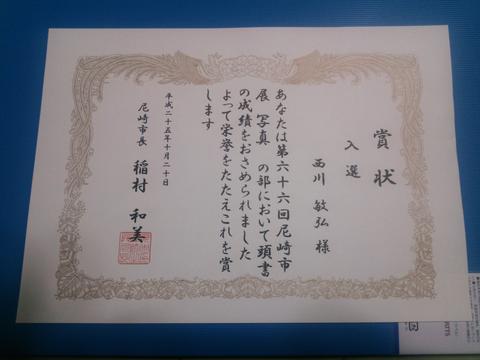 賞状
入選
西川 敏弘 様
あなたは第六十六回尼崎市
展 写真 の部において頭書
の成績をおさめられました
よって栄誉をたたえこれを賞
します
平成二十五年十月二十日
尼崎市長 稲村 和美